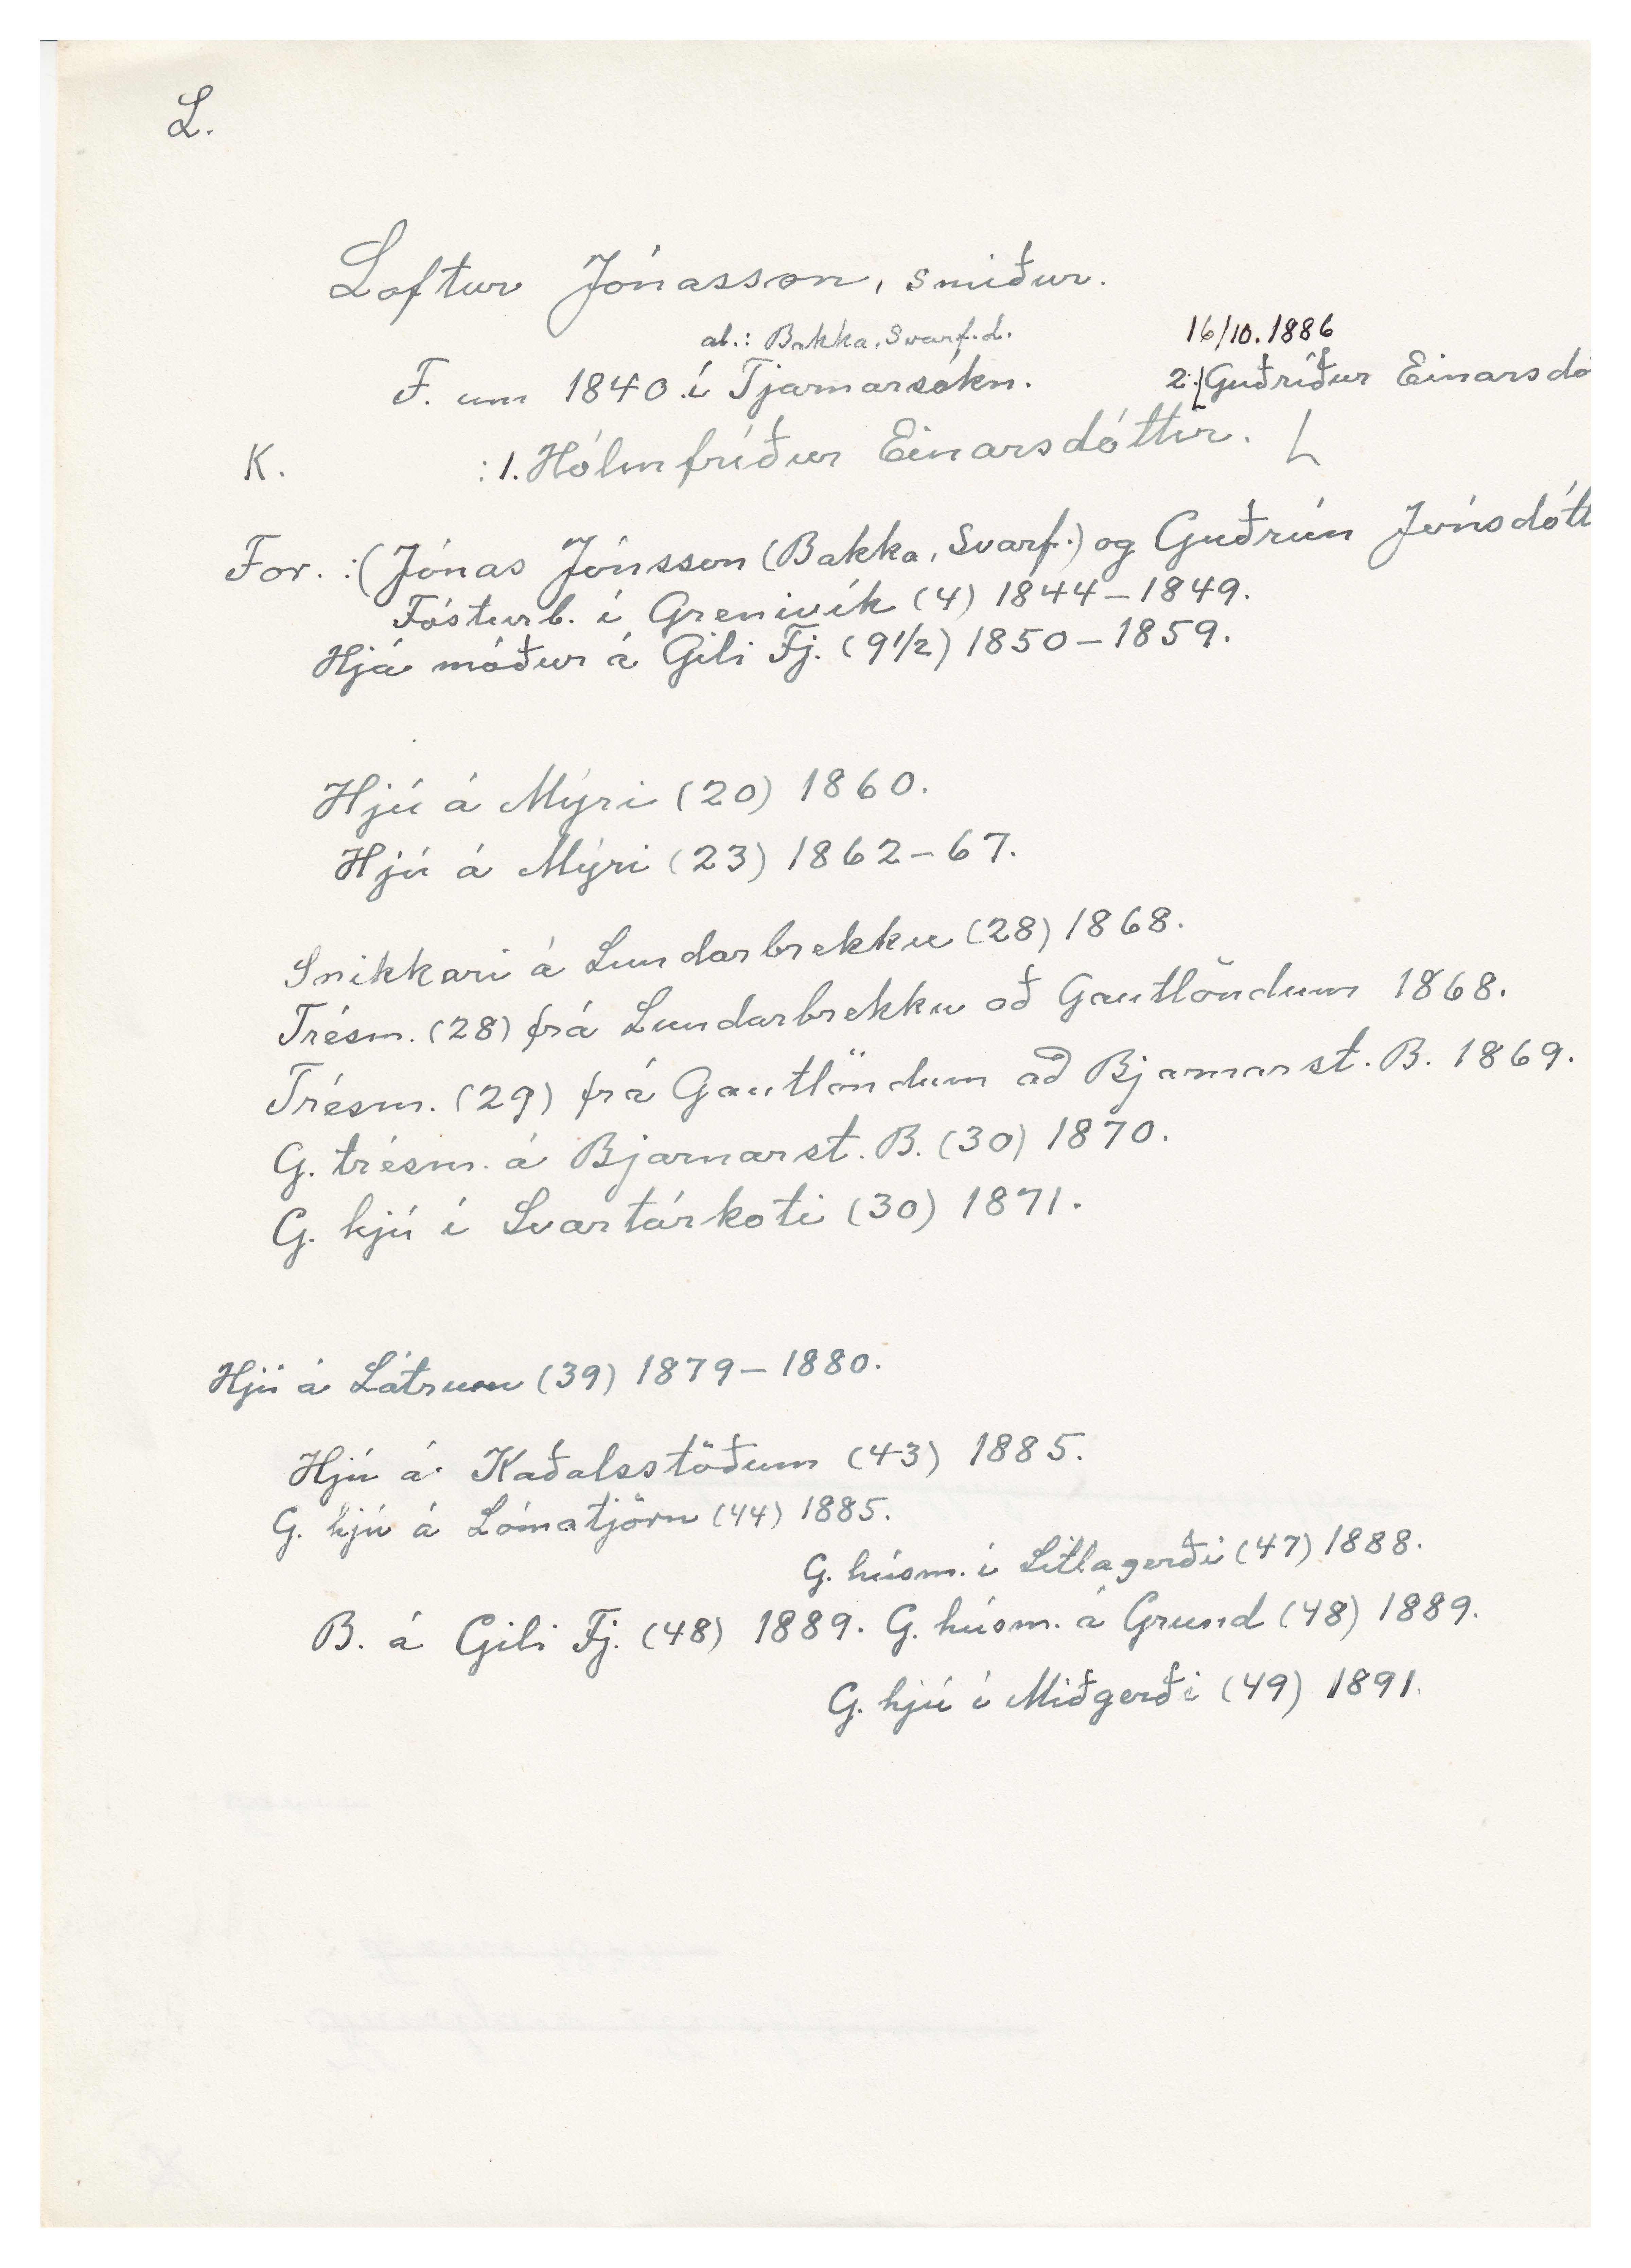 L.
Loftur Jónasson, smiður.
al.: Bakka, Svarf.d.
16/10.1886
F. um 1840 í Tjarnarsókn.
2. Guðríður Einarsdó
K. : 1. Hólmfríður Einarsdóttir.
For. : (Jónas Jónsson (Bakka, Svarf.) og Guðrún Jónsdótt
Fósturb. í Grenivík (4) 1844–1849.
Hjá móður á Gili Fj. (9½) 1850–1859.
Hjú á Mýri (20) 1860.
Hjú á Mýri (23) 1862–67.
Snikkari á Lundarbrekku (28) 1868.
Trésm. (28) frá Lundarbrekku að Gautlöndum 1868.
Trésm. (29) frá Gautlöndum að Bjarnarst. B. 1869.
G. trésm. á Bjarnarst. B. (30) 1870.
G. hjú í Svartárkoti (30) 1871.
Hjú á Látrum (39) 1879–1880.
Hjú á Kaðalsstöðum (43) 1885.
G. hjú á Lómatjörn (44) 1885.
G. húsm. í Litlagerði (47) 1888.
B. á Gili Fj. (48) 1889. G. húsm. á Grund (48) 1889.
G. hjú í Miðgerði (49) 1891.